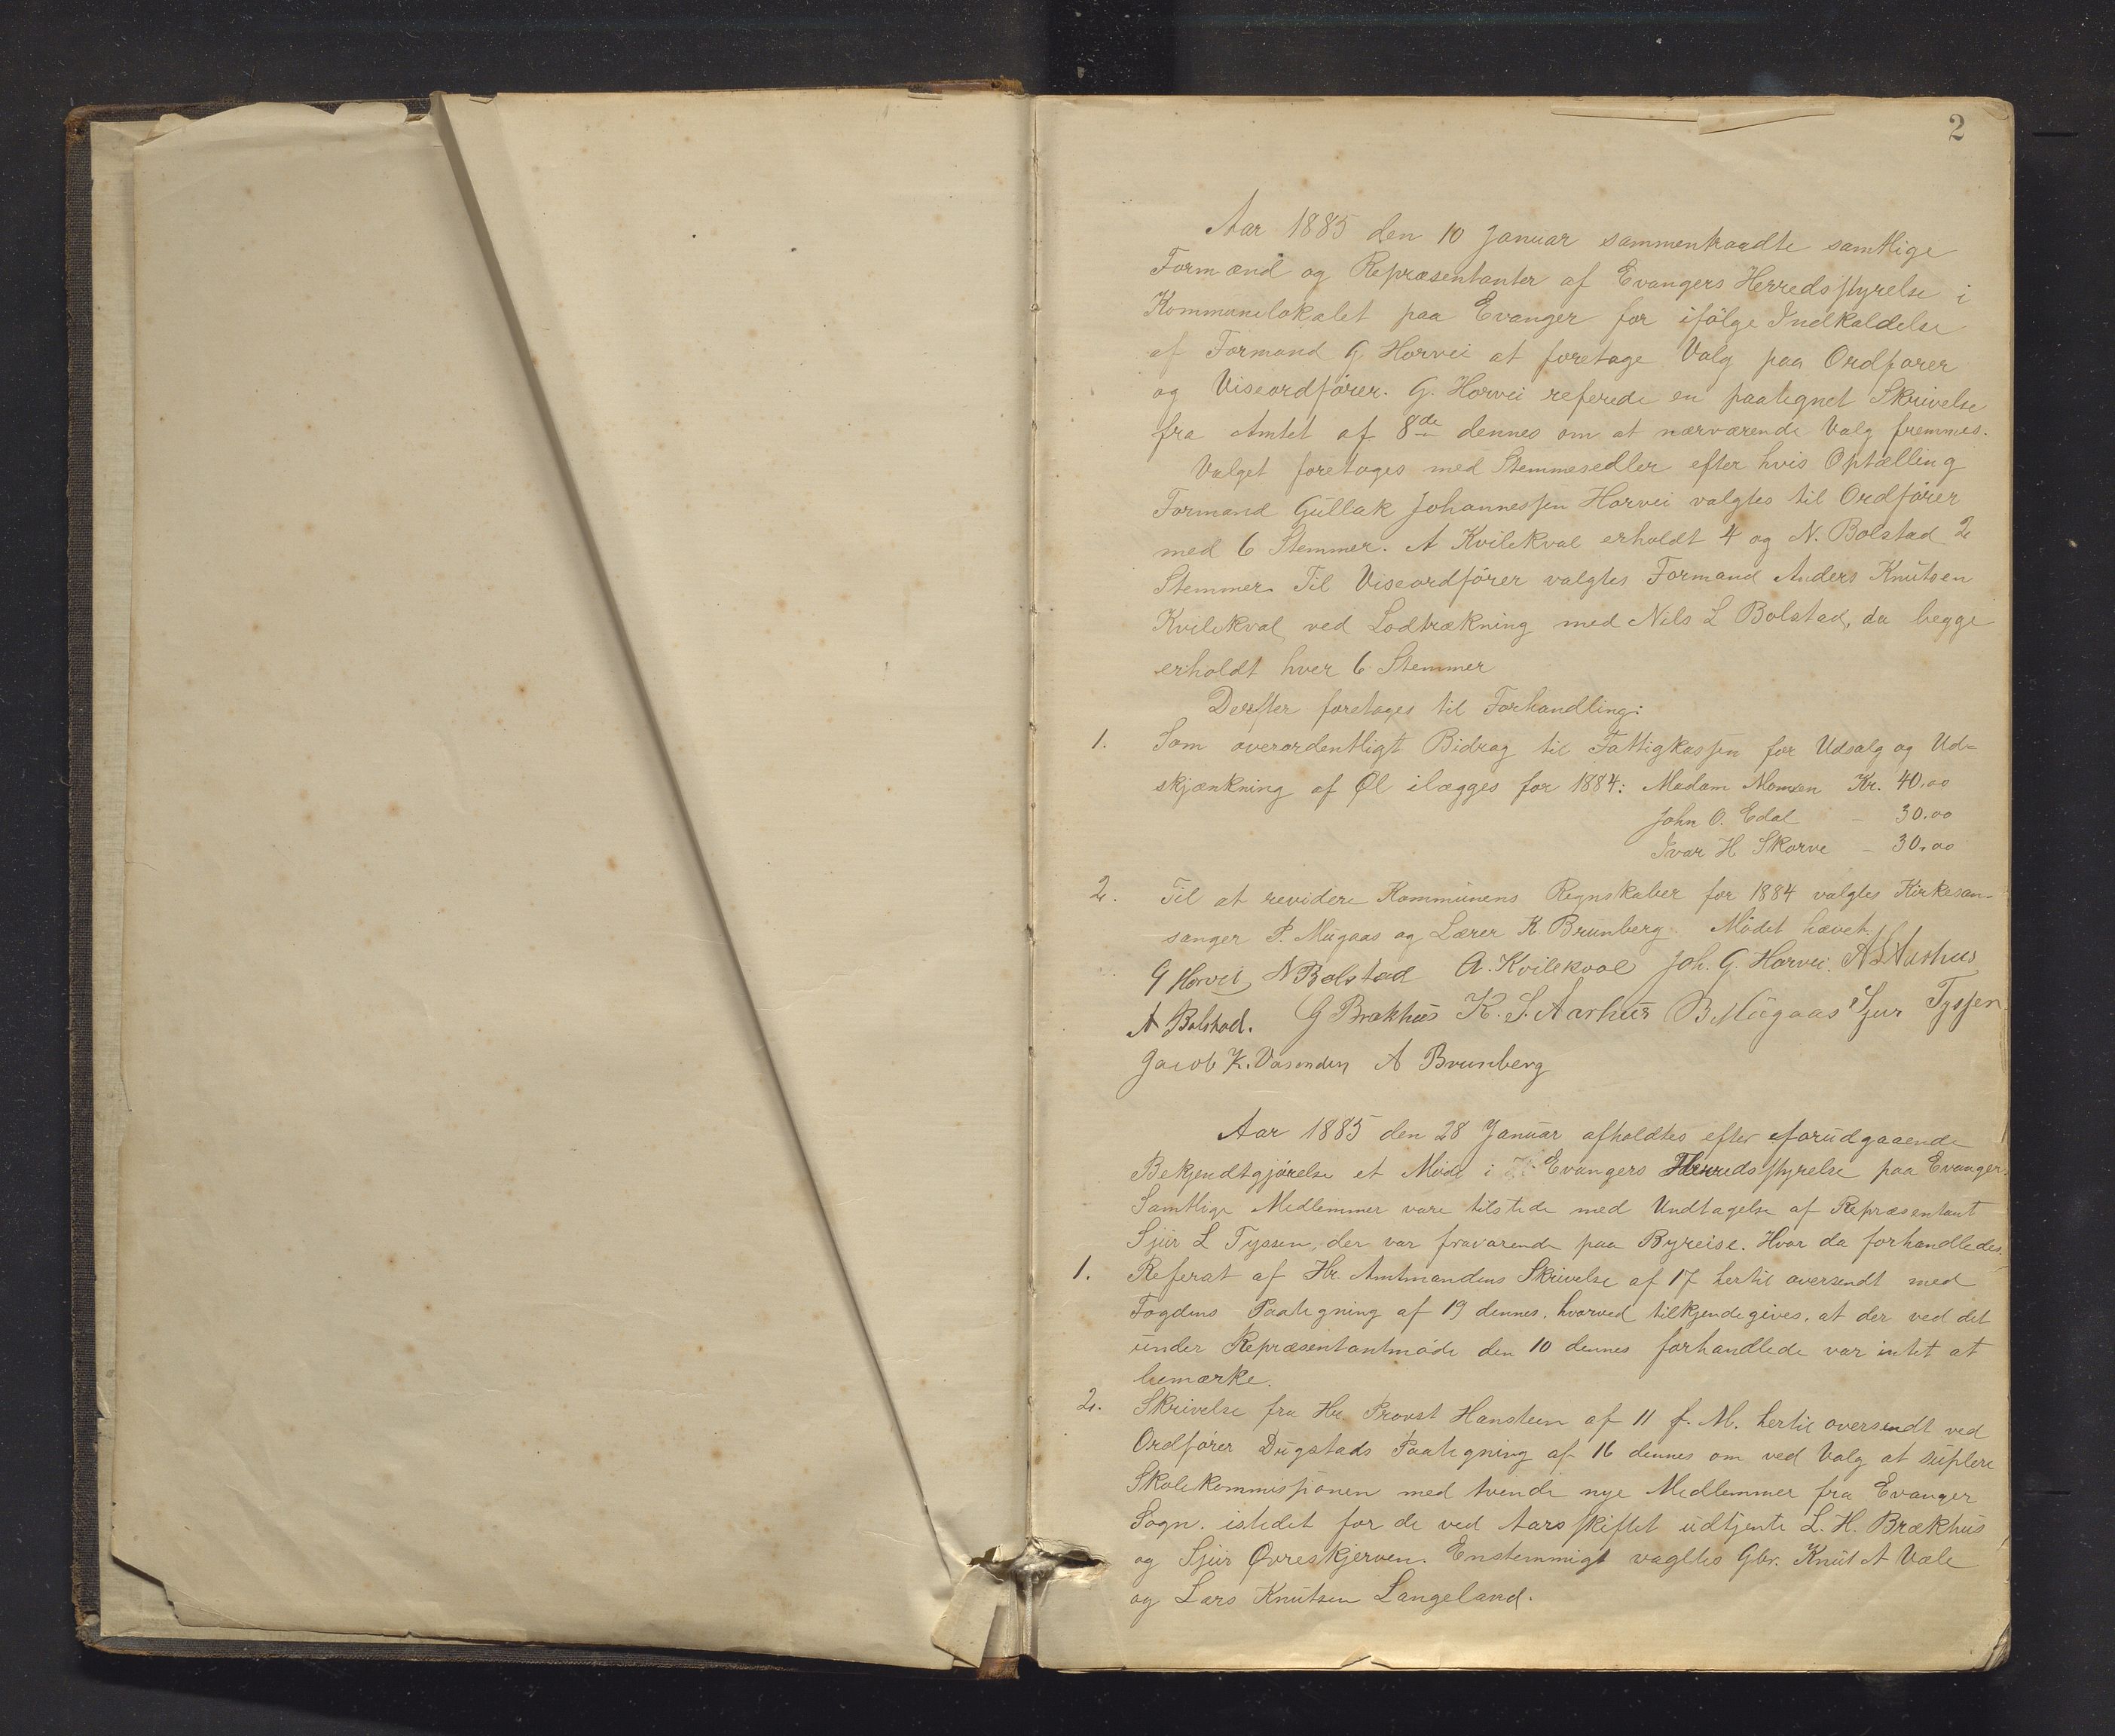 2
Aar 1885 den 10 Januar sammentraadte samtlige
Formænd og Repræsentanter af Evangers Herredsstyrelse i
Kommunelokalet paa Evanger for ifölge Indkaldelse
af Formand G. Horvei at foretage Valg paa Ordförer
og Viseordförer. G. Horvei referede en paategnet Skrivelse
fra Amtet af 8de dennes om at nærværende Valg fremmes.
Valget foretages med Stemmesedler efter hvis Optælling
Formand Gullak Johannessen Horvei valgtes til Ordförer
med 6 Stemmer. A Kvilekval erholdt 4 og N. Bolstad 2
Stemmer. Til Viseordförer valgtes Formand Anders Knutsen
Kvilekval ved Lodtrækning med Nils L Bolstad, da begge
erholdt hver 6 Stemmer
Derefter foretages til Forhandling:
1. Som overordentligt Bidrag til Fattigkassen for Udsalg og Ud-
skjænkning af Øl ilægges for 1884: Madam Monsen Kr. 40.00
John O. Edal - 30.00
Ivar H Skorve - 30.00
2. Til at revidere Kommunens Regnskaber for 1884 valgtes Kirkesan-
sanger P. Mugaas og Lærer K. Brunberg. Mödet hævet.
G Horvei N Bolstad A. Kvilekval Joh. G. Horvei.
A Bolstad. G Brækhus K. S. Aarhus B Mügaas Sjur Tyssen
Jacob K. Vasenden A Brunberg
Aar 1885 den 28 Januar afholdtes efter forudgaaende
Bekjendtgjörelse et Möde i Evangers Herredsstyrelse paa Evanger.
Samtlige Medlemmer vare tilstede med Undtagelse af Repræsentant
Sjur L Tyssen, der var fraværende paa Byreise. Hvor da forhandledes.
1. Referat af Hr. Amtmandens Skrivelse af 17 hertil oversendt med
Fogdens Paategning af 19 dennes, hvorved tilkjendegives, at der ved det
under Repræsentantmöde den 10 dennes forhandlede var intet at
bemærke.
2. Skrivelse fra Hr. Provst Hansteen af 11 f. M. hertil oversendt ved
Ordförer Dugstads Paategning af 16 dennes om ved Valg at suplere
Skolekommissionen med tvende nye Medlemmer fra Evanger
Sogn. istedet for de ved Aarsskiftet udtjente L. H. Brækhus
og Sjur Øvreskjerven. Enstemmigt vagltes Gbr. Knut A Væle
og Lars Knutsen Langeland.